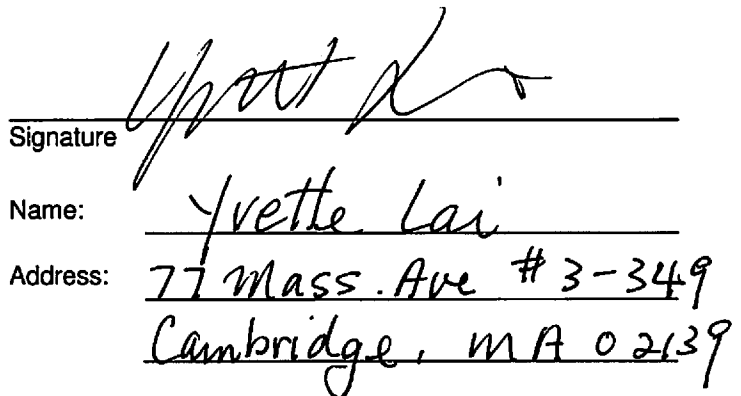 Signature
Name: Yvette Lai
Address: 77 Mass. Ave #3-349
Cambridge, MA 02139